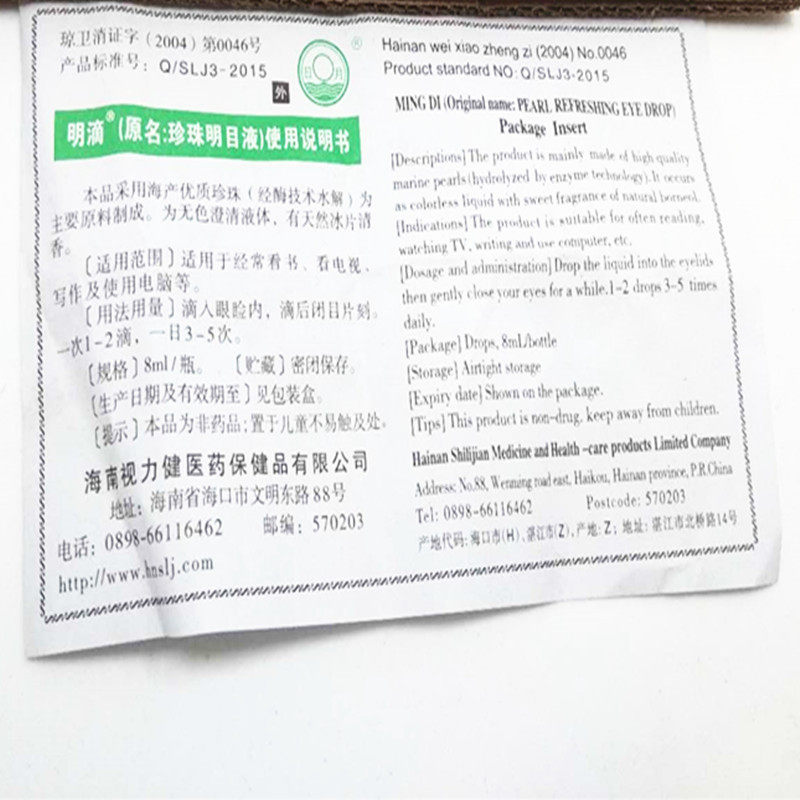 琼卫消证字（2004）第0046号
产品标准号：Q/SLJ3-2015
外
日 月
®
明滴®(原名:珍珠明目液)使用说明书
本品采用海产优质珍珠（经酶技术水解）为
主要原料制成。为无色澄清液体，有天然冰片清
香。
〔适用范围〕适用于经常看书、看电视、
写作及使用电脑等。
〔用法用量〕滴入眼睑内，滴后闭目片刻。
一次1-2滴，一日3-5次。
〔规格〕8ml/瓶。 〔贮藏〕密闭保存。
〔生产日期及有效期至〕见包装盒。
〔提示〕本品为非药品;置于儿童不易触及处。
海南视力健医药保健品有限公司
地址: 海南省海口市文明东路88号
电话: 0898-66116462 邮编: 570203
http://www.hnslj.com
Hainan wei xiao zheng zi (2004) No.0046
Product standard NO: Q/SLJ3-2015
MING DI (Original name: PEARL REFRESHING EYE DROP)
Package Insert
[Descriptions] The product is mainly made of high quality
marine pearls (hydrolyzed by enzyme technology). It occurs
as colorless liquid with sweet fragrance of natural borneol.
[Indications] The product is suitable for often reading,
watching TV, writing and use computer, etc.
[Dosage and administration] Drop the liquid into the eyelids
then gently close your eyes for a while.1-2 drops 3-5 times
daily.
[Package] Drops, 8mL/bottle
[Storage] Airtight storage
[Expiry date] Shown on the package.
[Tips] This product is non-drug, keep away from children.
Hainan Shilijian Medicine and Health -care products Limited Company
Address: No.88, Wenming road east, Haikou, Hainan province, P.R.China
Tel: 0898-66116462 Postcode: 570203
产地代码: 海口市(H)、湛江市(Z), 产地: Z; 地址: 湛江市北桥路14号